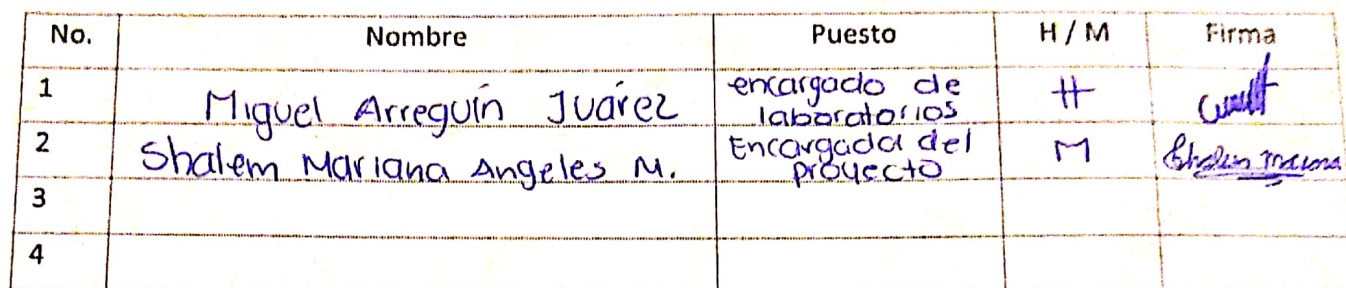 No. Nombre Puesto H / M Firma
1 Miguel Arreguín Juárez encargado de laboratorios H
2 Shalem Mariana Angeles M. Encargada del proyecto M Shalem Mariana
3
4